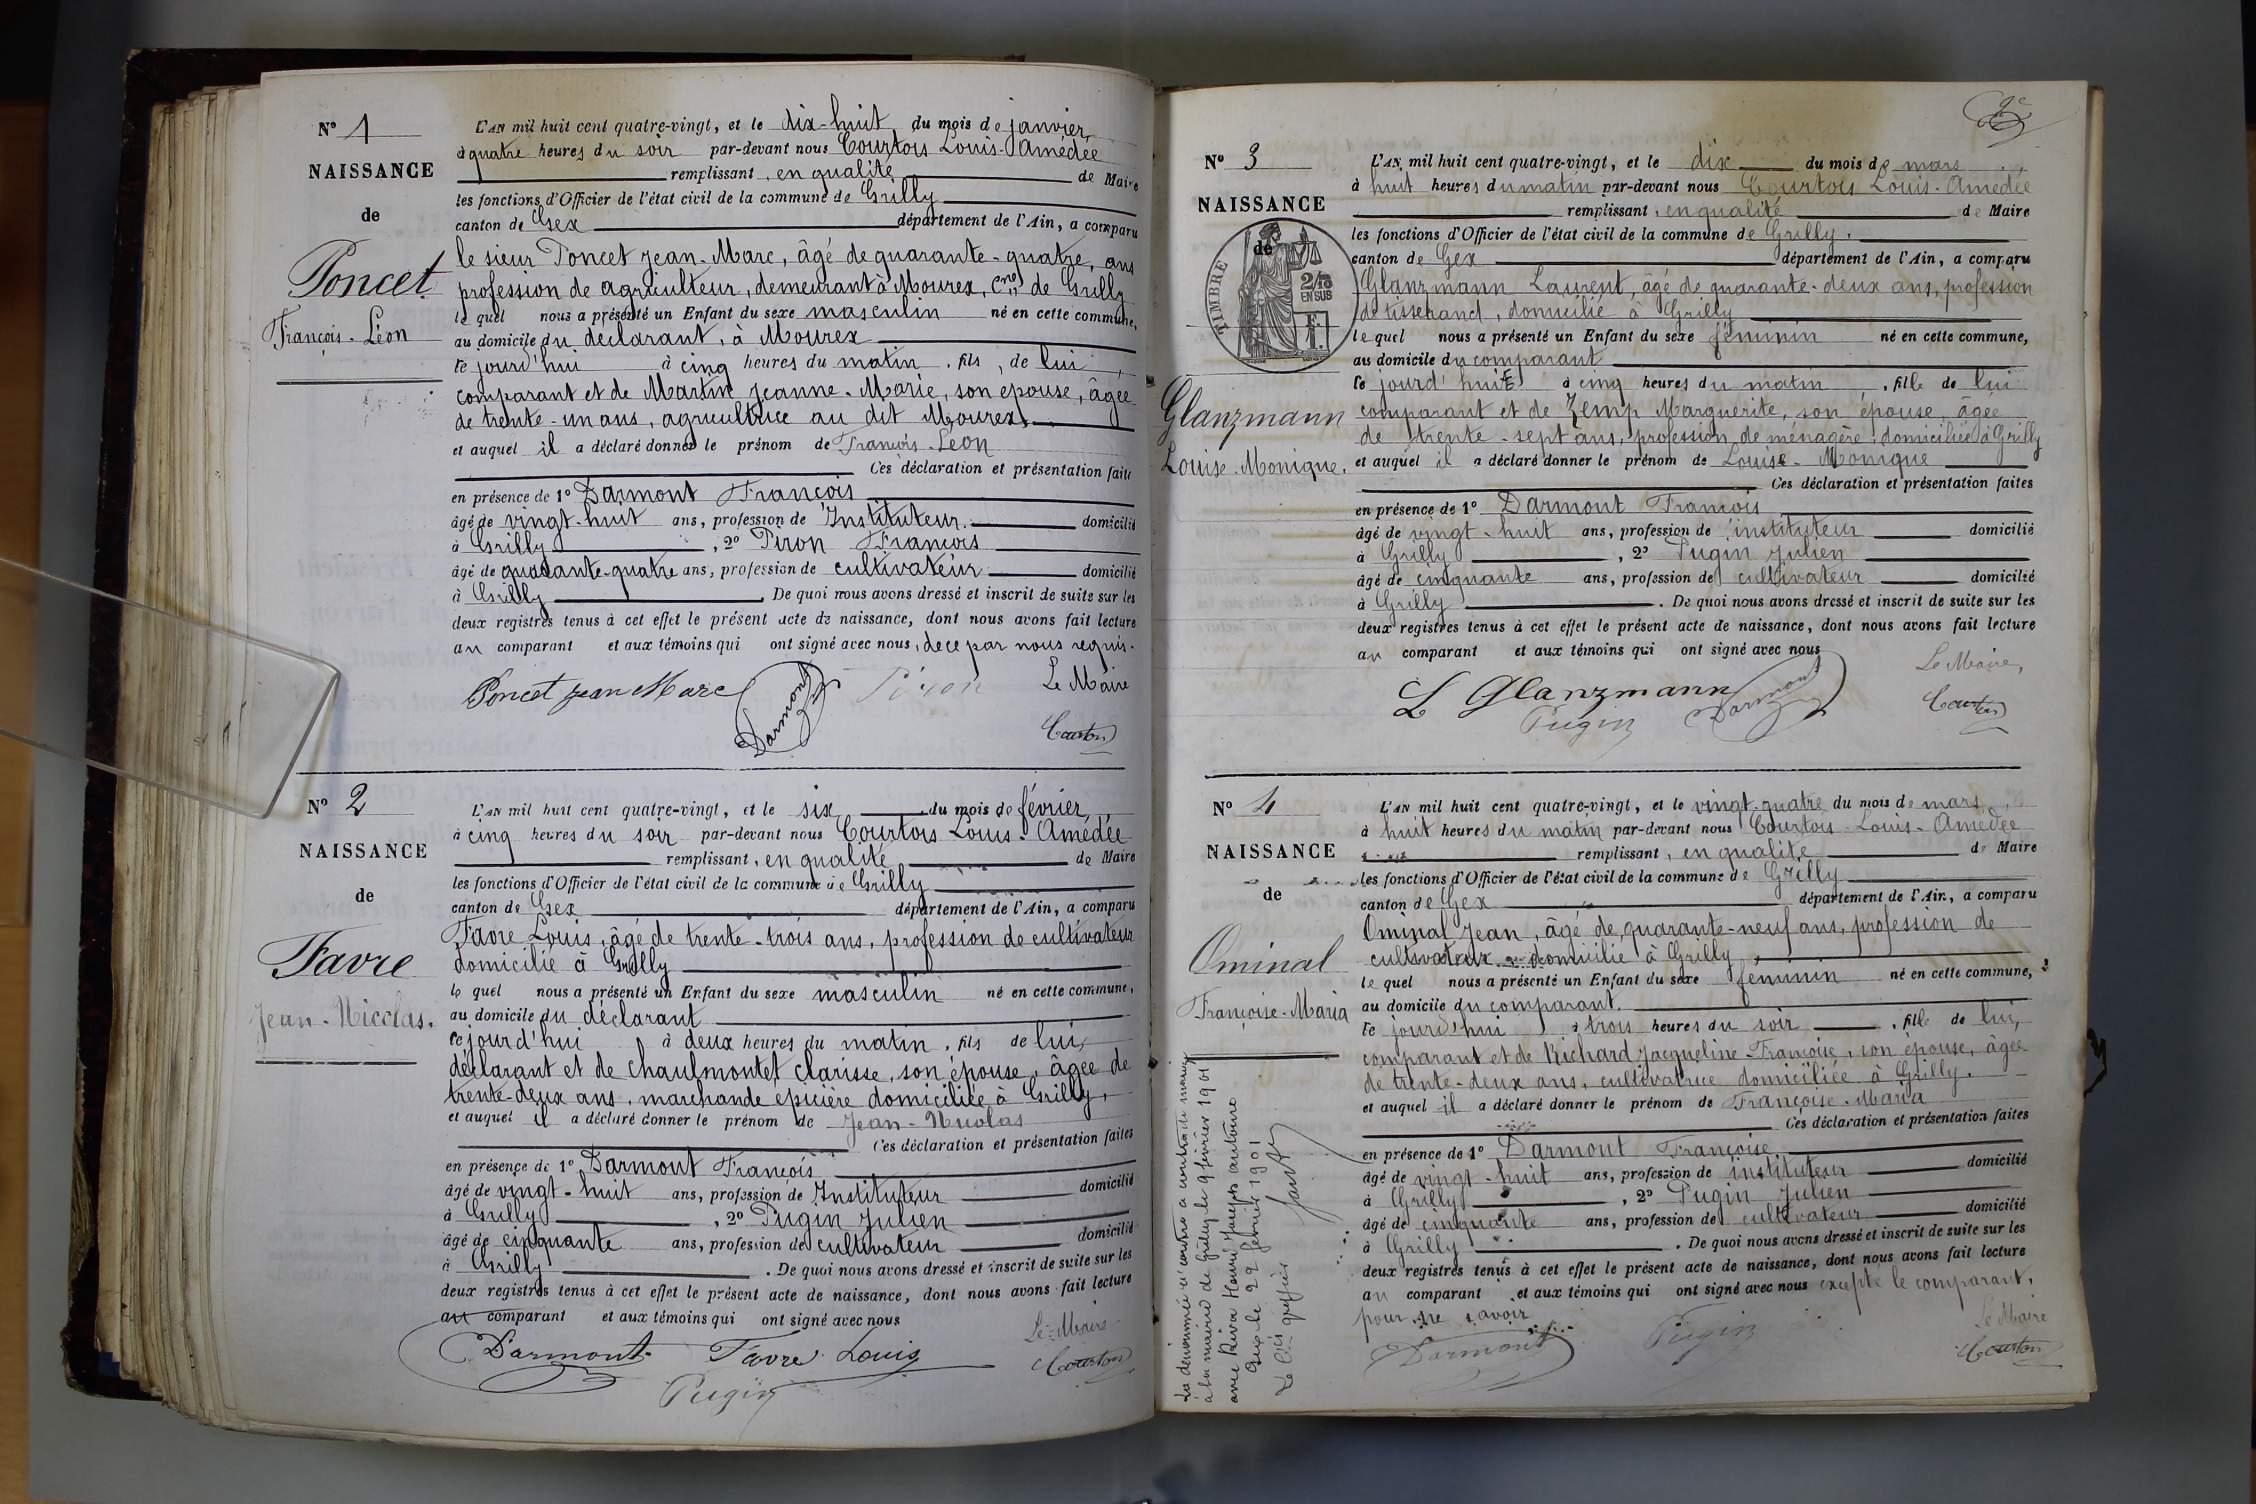 N° 1
NAISSANCE
de
Poncet
François-Léon
L'AN mil huit cent quatre-vingt, et le dix-huit du mois de janvier,
à quatre heures du soir par-devant nous Courtois Louis-Amédée
remplissant, en qualité de Maire
les fonctions d'Officier de l'état civil de la commune de Grilly
canton de Gex département de l'Ain, a comparu
le sieur Poncet Jean-Marc, âgé de quarante-quatre, ans
profession de agriculteur, demeurant à Mourex, Cne de Grilly
lequel nous a présenté un Enfant du sexe masculin né en cette commune,
au domicile du déclarant, à Mourex
le jourd'hui à cinq heures du matin, fils, de lui,
comparant et de Martin Jeanne-Marie, son épouse, âgée
de trente-un ans, agricultrice au dit Mourex.
et auquel il a déclaré donner le prénom de François-Léon
Ces déclaration et présentation faites
en présence de 1° Darmont François
âgé de vingt-huit ans, profession de Instituteur. domicilié
à Grilly, 2° Piron François
âgé de quarante-quatre ans, profession de cultivateur domicilié
à Grilly. De quoi nous avons dressé et inscrit de suite sur les
deux registres tenus à cet effet le présent acte de naissance, dont nous avons fait lecture
au comparant et aux témoins qui ont signé avec nous, de ce par nous requis.
Poncet Jean Marc Darmont Piron Le Maire
Courtois
N° 2
NAISSANCE
de
Favre
Jean-Nicolas.
L'AN mil huit cent quatre-vingt, et le six du mois de février,
à cinq heures du soir par-devant nous Courtois Louis-Amédée
remplissant, en qualité de Maire
les fonctions d'Officier de l'état civil de la commune de Grilly
canton de Gex département de l'Ain, a comparu
Favre Louis, âgé de trente-trois ans, profession de cultivateur
domicilié à Grilly
lequel nous a présenté un Enfant du sexe masculin né en cette commune,
au domicile du déclarant
le jourd'hui à deux heures du matin, fils de lui,
déclarant et de Chaulmontet Clarisse, son épouse, âgée de
trente-deux ans, marchande épicière domiciliée à Grilly,
et auquel il a déclaré donner le prénom de Jean-Nicolas
Ces déclaration et présentation faites
en présence de 1° Darmont François
âgé de vingt-huit ans, profession de Instituteur domicilié
à Grilly, 2° Pugin Julien
âgé de cinquante ans, profession de cultivateur domicilié
à Grilly. De quoi nous avons dressé et inscrit de suite sur les
deux registres tenus à cet effet le présent acte de naissance, dont nous avons fait lecture
au comparant et aux témoins qui ont signé avec nous
Le Maire
Darmont Favre Louis Courtois
Pugin
2e
N° 3
NAISSANCE
de
TIMBRE
2/10
EN SUS
F.
Glanzmann
Louise-Monique.
L'AN mil huit cent quatre-vingt, et le dix du mois de mars
à huit heures du matin par-devant nous Courtois Louis-Amédée
remplissant, en qualité de Maire
les fonctions d'Officier de l'état civil de la commune de Grilly.
canton de Gex département de l'Ain, a comparu
Glanzmann Laurent, âgé de quarante-deux ans, profession
de tisserand, domicilié à Grilly
lequel nous a présenté un Enfant du sexe féminin né en cette commune,
au domicile du comparant
le jourd'hui à cinq heures du matin, fille de lui
comparant et de Zemp Marguerite, son épouse, âgée
de trente-sept ans, profession de ménagère domiciliée à Grilly
et auquel il a déclaré donner le prénom de Louise-Monique
Ces déclaration et présentation faites
en présence de 1° Darmont François
âgé de vingt-huit ans, profession de instituteur domicilié
à Grilly, 2° Pugin Julien
âgé de cinquante ans, profession de cultivateur domicilié
à Grilly. De quoi nous avons dressé et inscrit de suite sur les
deux registres tenus à cet effet le présent acte de naissance, dont nous avons fait lecture
au comparant et aux témoins qui ont signé avec nous
Le Maire,
L Glanzmann Darmont
Pugin Courtois
N° 4
NAISSANCE
de
Ominal
Françoise-Maria
La dénommée ci contre a contracté mariage
à la mairie de Grilly le 9 février 1901
avec Riva Henri Joseph Antoine
Gex le 22 février 1901
Le Cis greffier
L'AN mil huit cent quatre-vingt, et le vingt-quatre du mois de mars,
à huit heures du matin par-devant nous Courtois Louis-Amédée
remplissant, en qualité de Maire
les fonctions d'Officier de l'état civil de la commune de Grilly
canton de Gex département de l'Ain, a comparu
Ominal Jean, âgé de quarante-neuf ans, profession de
cultivateur domicilié à Grilly,
lequel nous a présenté un Enfant du sexe féminin né en cette commune,
au domicile du comparant.
le jourd'hui à trois heures du soir, fille de lui,
comparant et de Richard Jacqueline-Françoise, son épouse, âgée
de trente-deux ans, cultivatrice domiciliée à Grilly.
et auquel il a déclaré donner le prénom de Françoise-Maria
Ces déclaration et présentation faites
en présence de 1° Darmont Françoise
âgé de vingt-huit ans, profession de instituteur domicilié
à Grilly, 2° Pugin Julien
âgé de cinquante ans, profession de cultivateur domicilié
à Grilly. De quoi nous avons dressé et inscrit de suite sur les
deux registres tenus à cet effet le présent acte de naissance, dont nous avons fait lecture
au comparant et aux témoins qui ont signé avec nous excepté le comparant,
pour ne savoir
Le Maire
Darmont Pugin Courtois